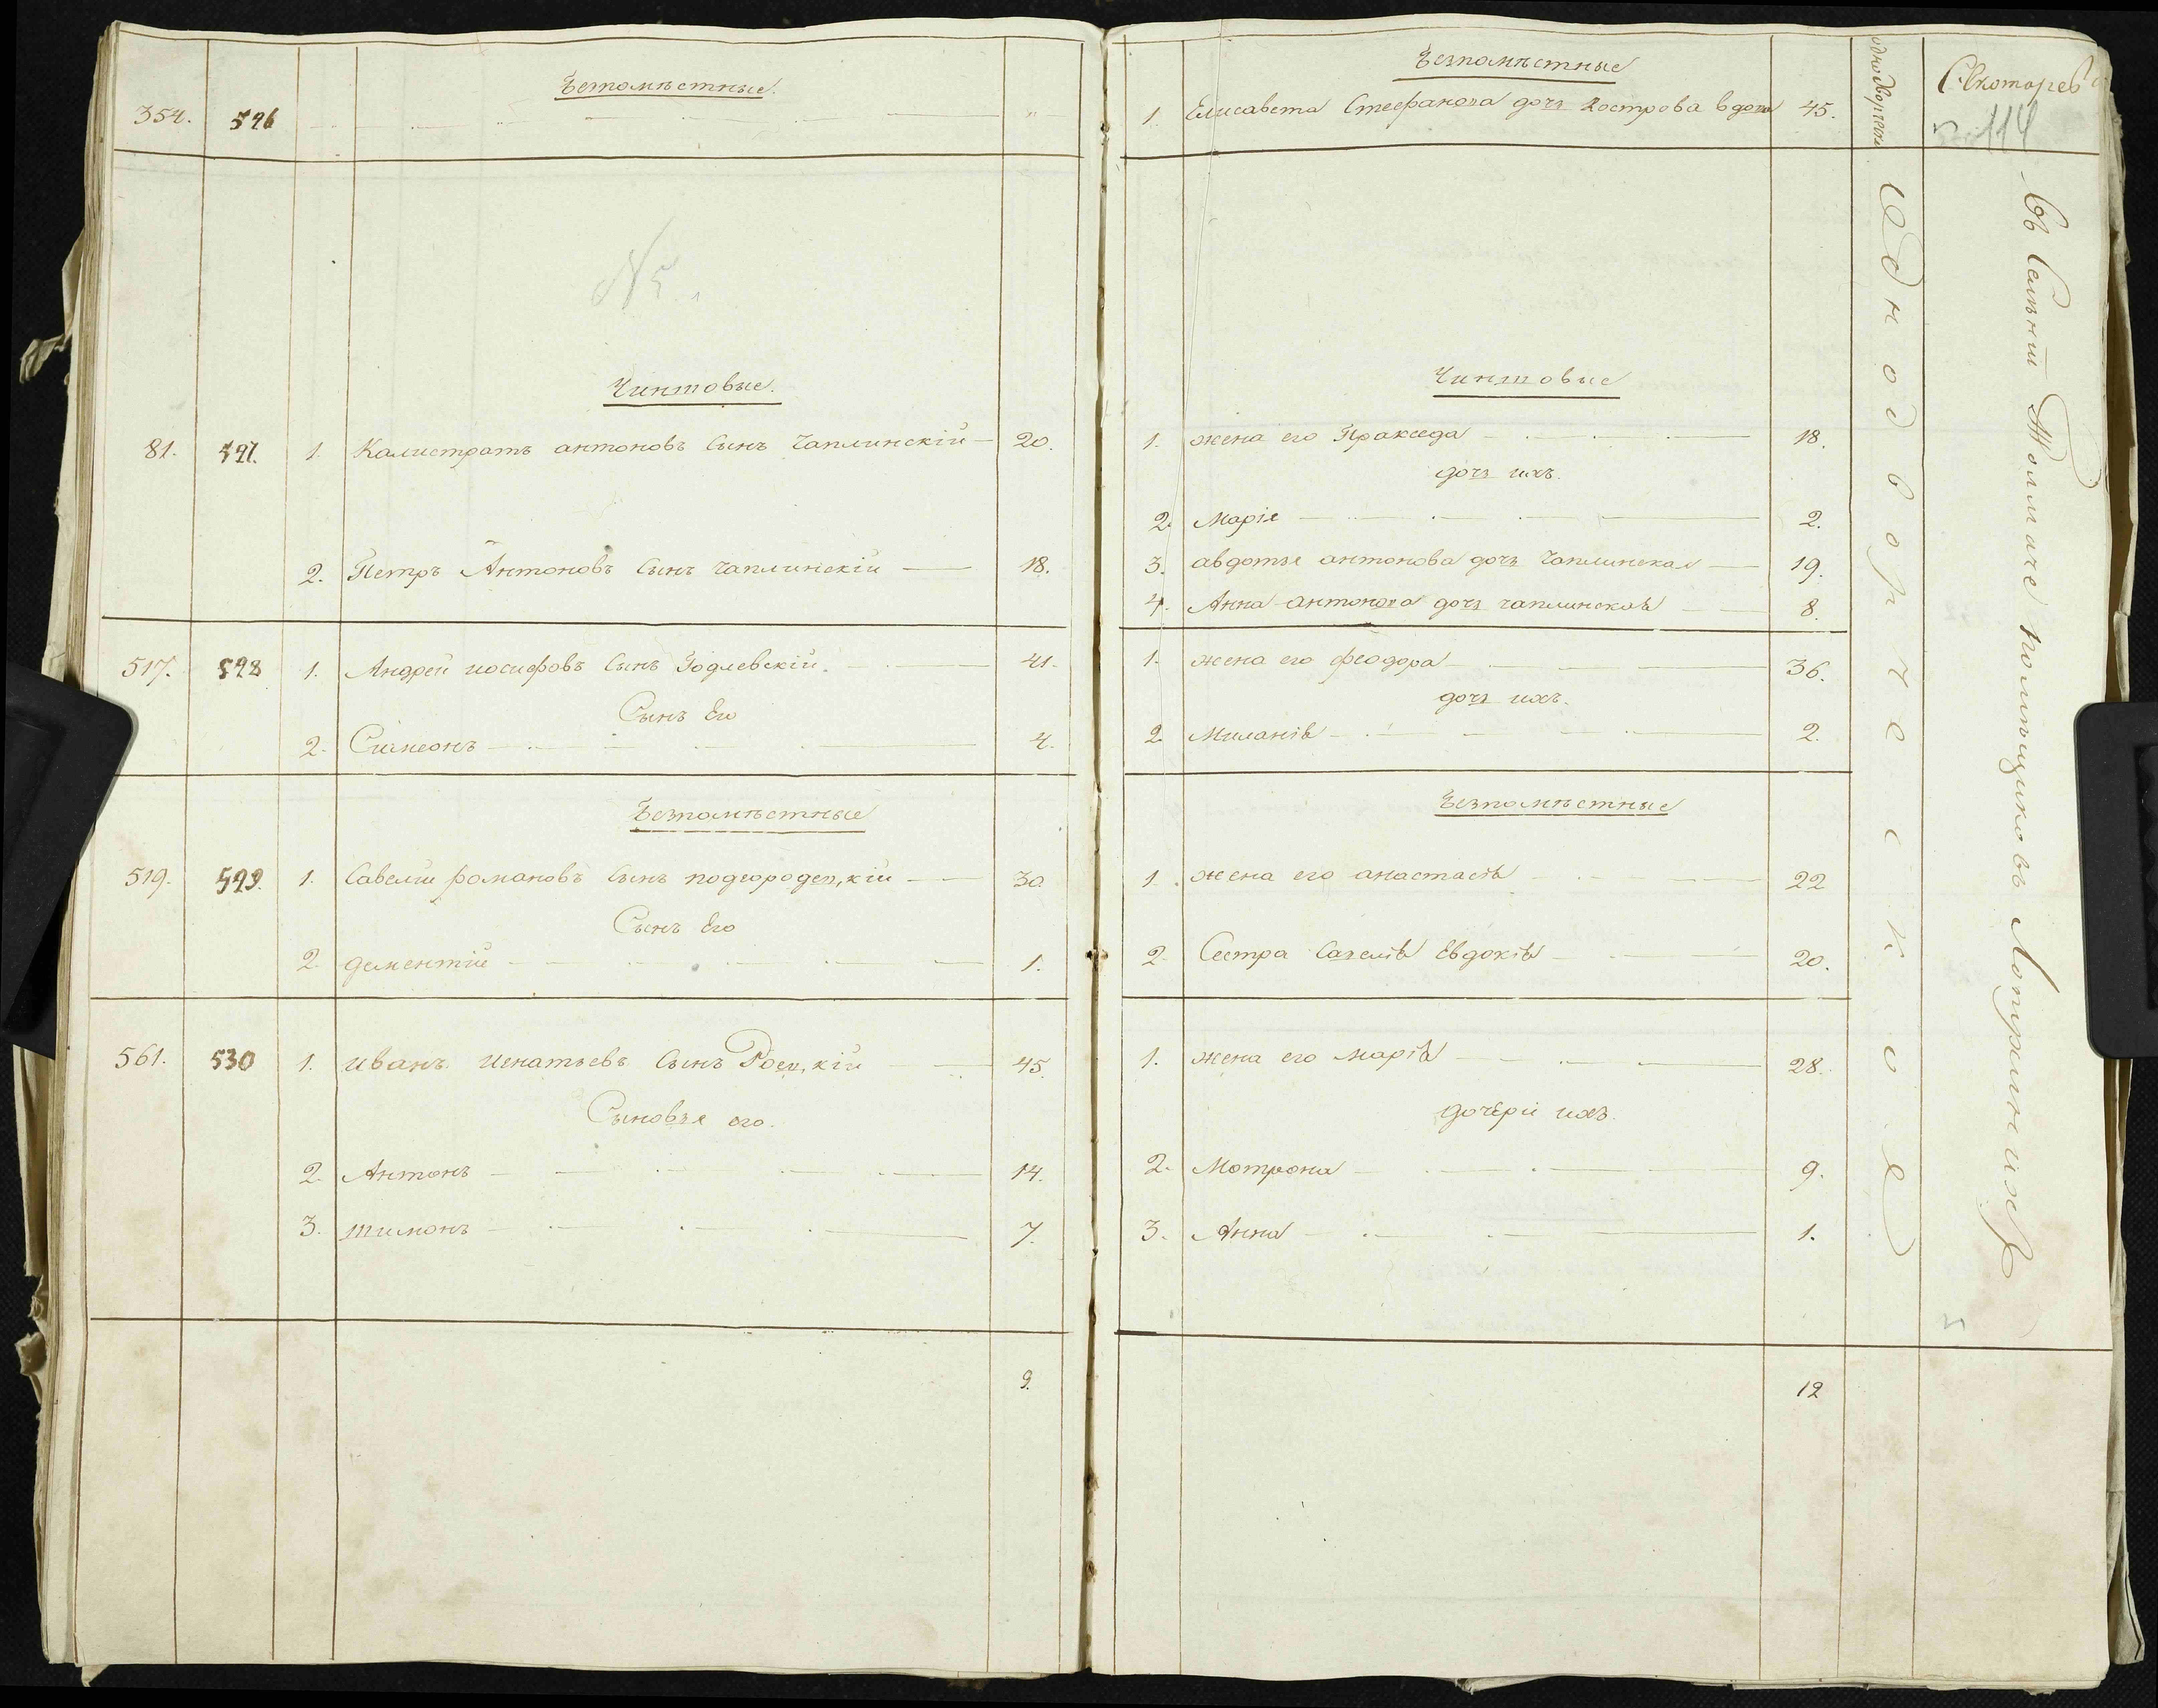 Безпоместные.
354. 526
№5.
Чиншовые.
81. 527. 1. Калистратъ антоновъ сынъ Чаплинскій 20.
2. Петръ Антоновъ сынъ чаплинскій 18.
517. 528 1. Андрей иосифовъ сынъ Годлевскій. 41.
Сынъ Его
2. Симеонъ 4.
Безпомѣстные
519. 529. 1. Савелій романовъ сынъ подгородец,кій 30.
Сынъ Его
2. дементій 1.
561. 530 1. иванъ игнатьевъ сынъ Роец,кій 45.
Сыновья его.
2. Антонъ 14.
3. тимонъ 7.
9.
Безпомѣстные
1. Елисавета Стефанова дочь Кострова вдова 45.
Чиншовые
1. жена его Пракседа 18.
дочь ихъ.
2. Марія 2.
3. авдотья антонова дочь Чаплинская 19.
4. Анна антонова дочь чаплинская 8.
1. жена его феодора 36.
дочь ихъ.
2. Миланія 2.
Безпомѣстные
1. жена его анастасія 22
2. Сестра Савелія Евдокія 20.
1. жена его марія 28.
дочери ихъ.
2. Мотрона 9.
3. Анна 1.
12
Однодворческое
114
Въ Селѣніи Толмаче помѣщиковъ